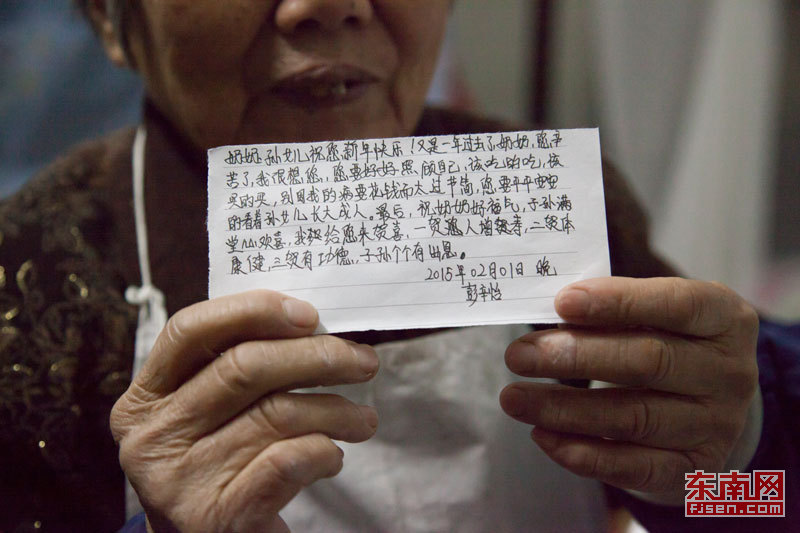 奶奶孙女儿祝愿新年快乐！又是一年过去了奶奶，愿辛
苦了，我很想您，愿要好好照顾自己，该吃的吃，该
买的买，别因我的病要花钱而太过节简，愿要平平安安
的看着孙女儿长大成人。最后，祝奶奶好福气，子孙满
堂山欢喜，我给愿来贺喜，一贺愿人增寿，二贺体
康健，三贺有功德，子孙个有出息。
2015年02月01日 晚
彭辛怡
东南网
fjsen.com